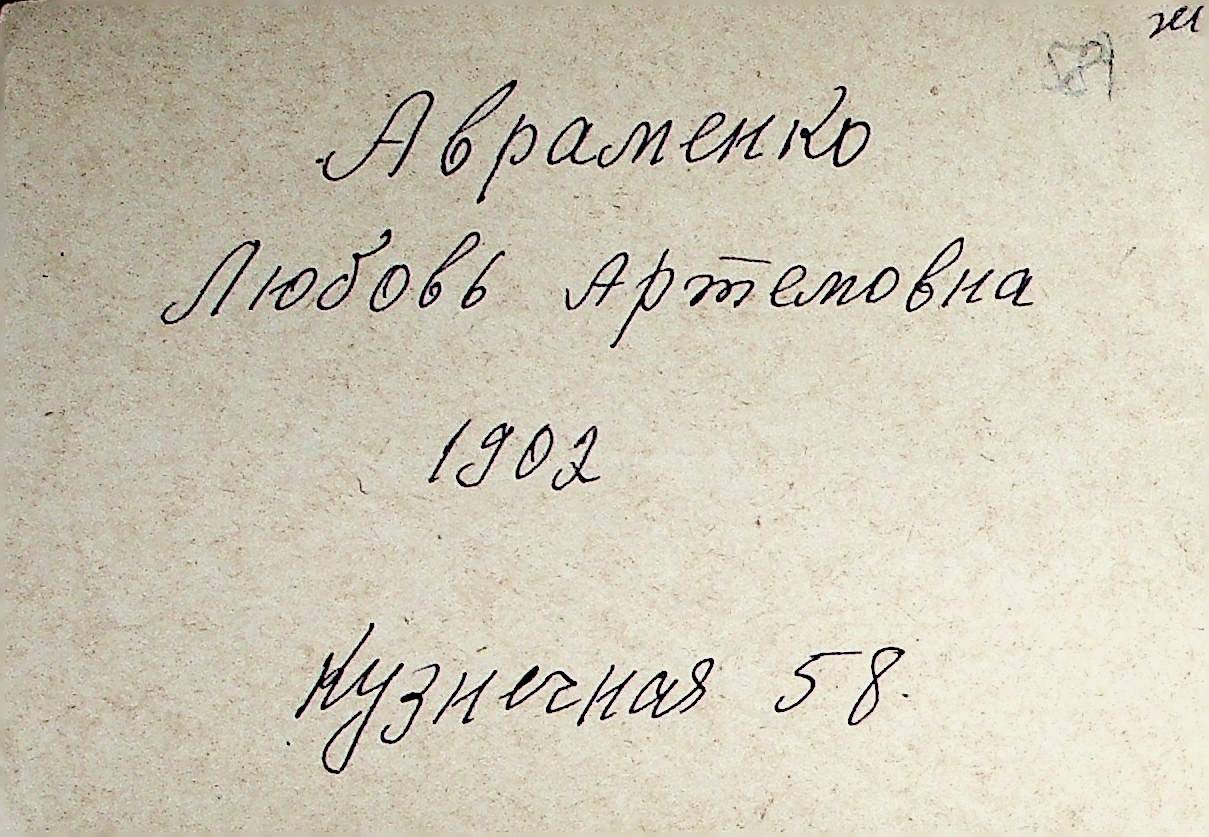 Авраменко
Любовь Артемовна
1902
Кузнечная 58.